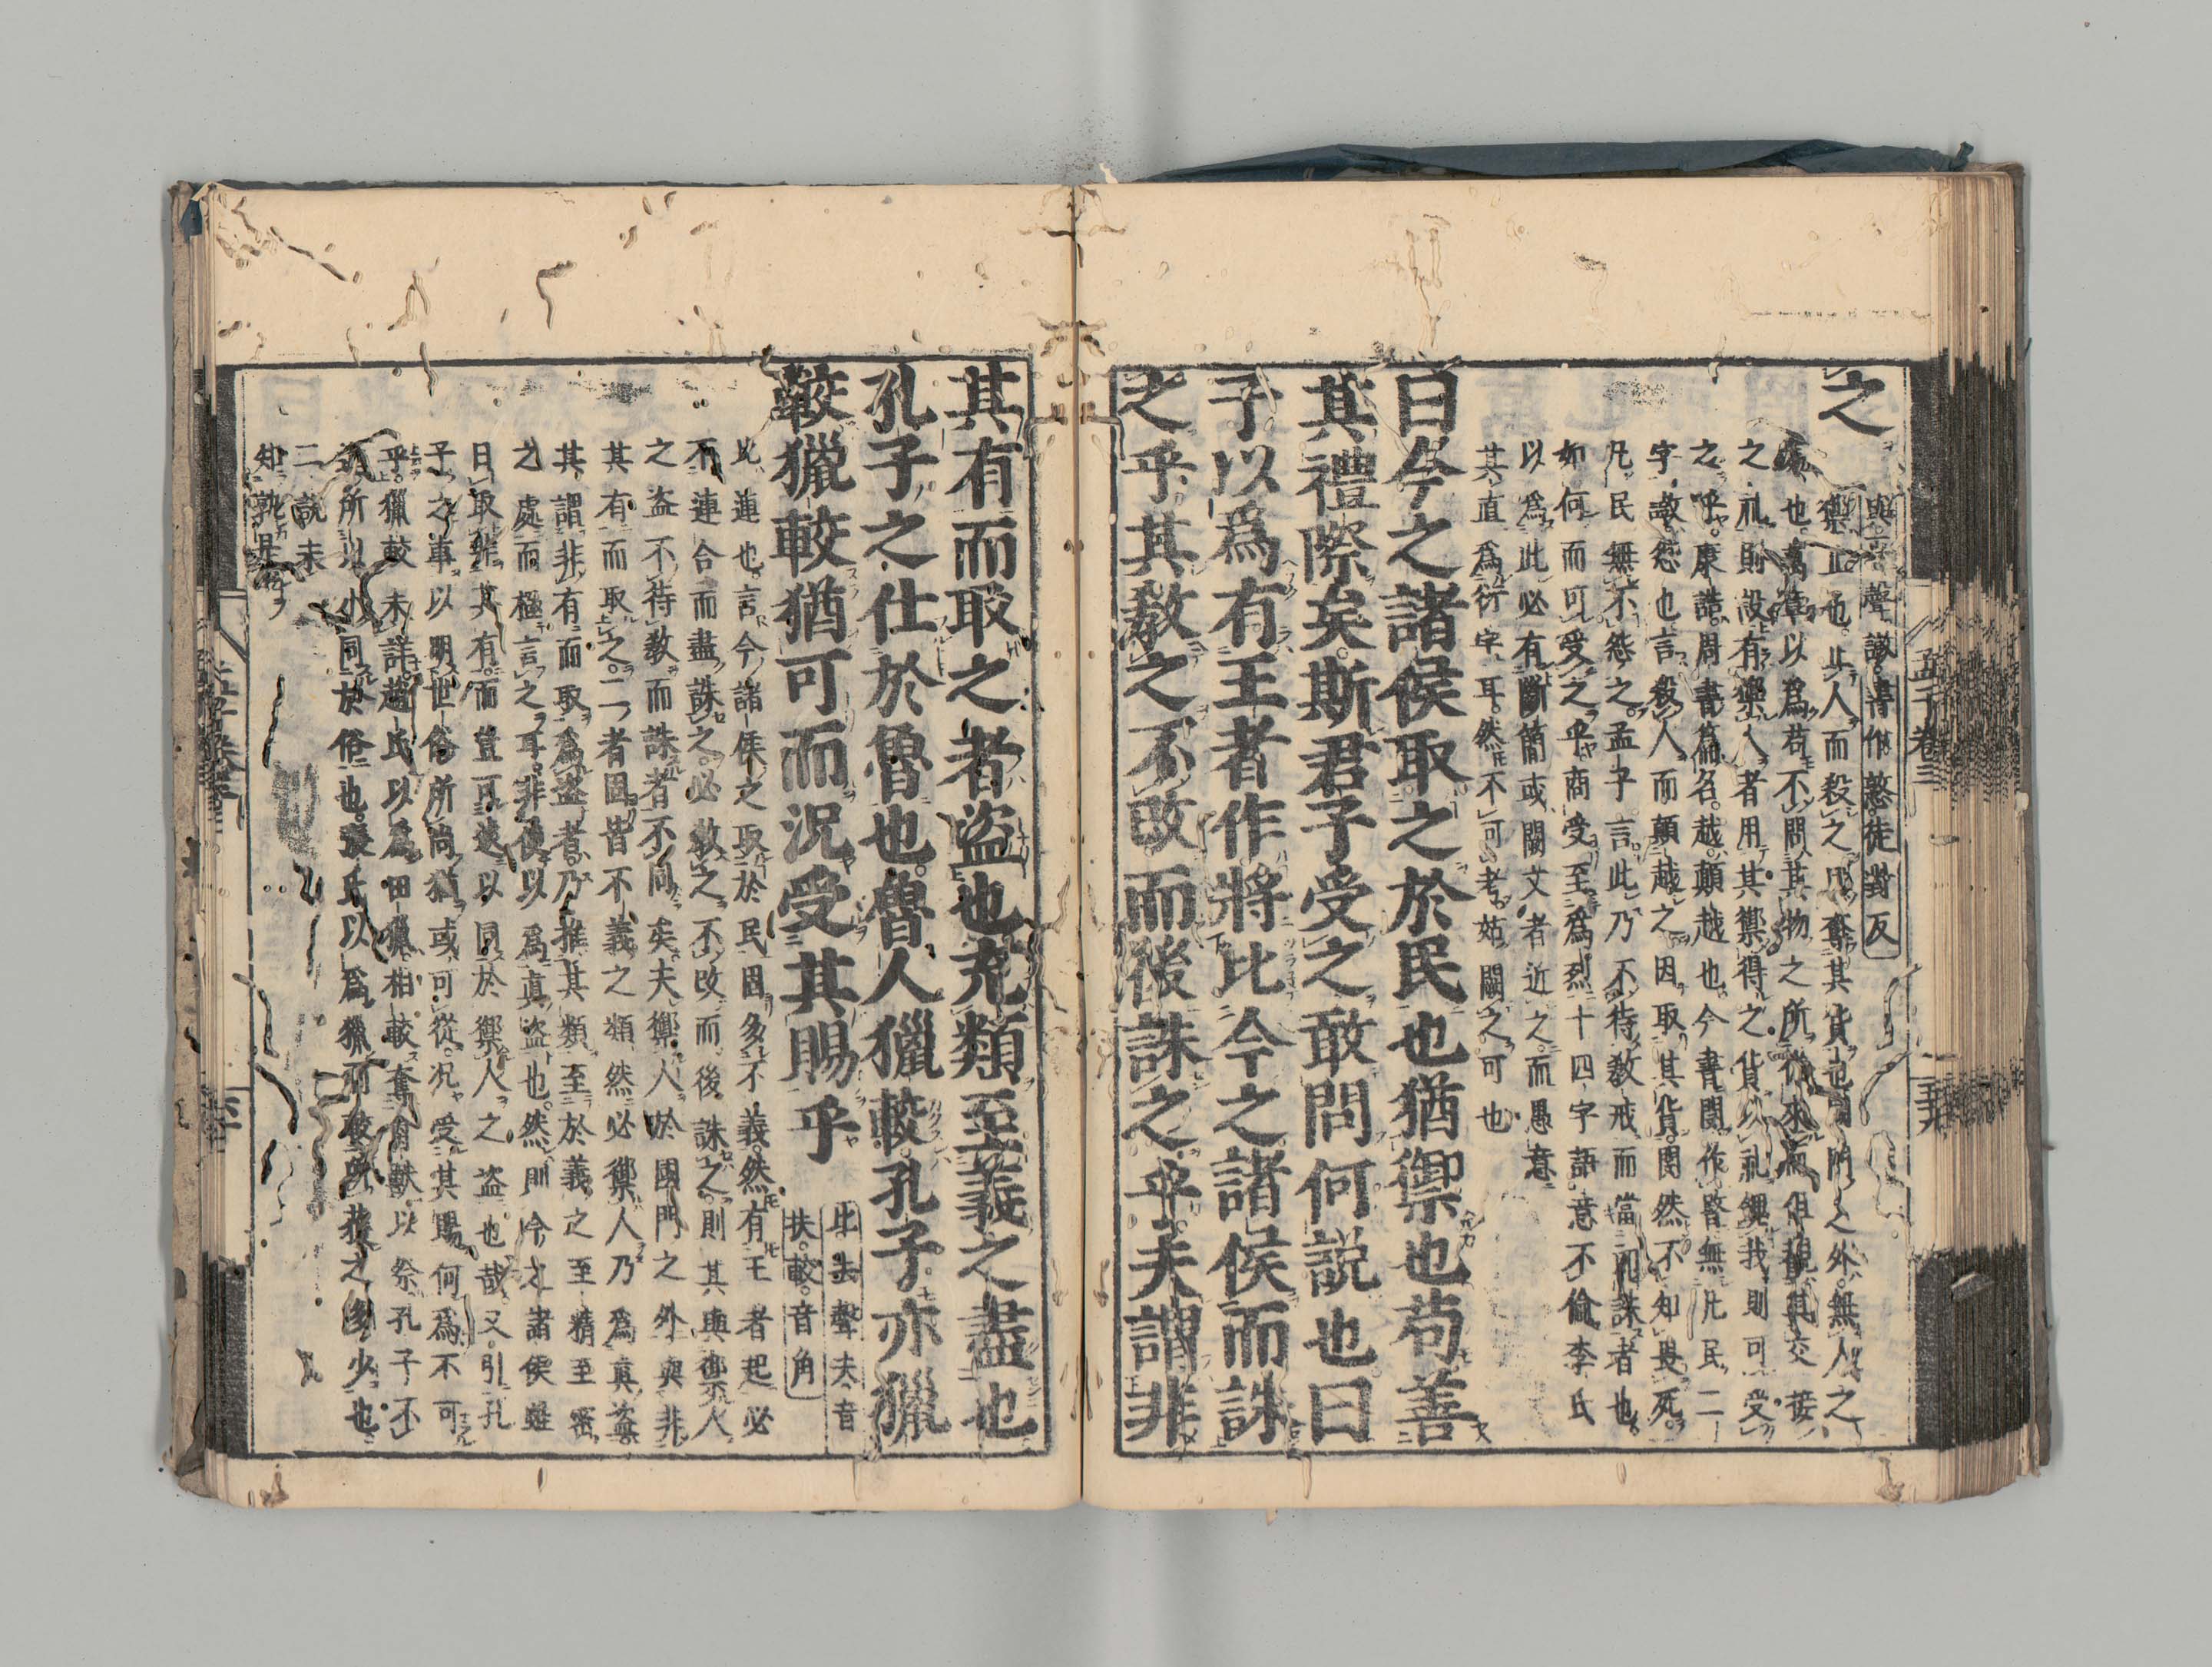 之
與平聲譈書作憝徒對反
禦止也止人而殺之因奪其貨也國門之外無人之
處也萬章以爲苟不問其物之所從來而但觀其交接
之礼則設有禦人者用其禦得之貨以礼餽我則可受
之乎康誥周書篇名越顛越也今書閔作暋無凡民二
字譈怨也言殺人而顛越之因取其貨閔然不知畏死
凡民無不怨之孟子言此乃不待教戒而當即誅者也
如何而可受之乎商受至爲烈十四字語意不倫李氏
以爲此必有斷簡或闕文者近之而愚意
其直爲衍字耳然不可考姑闕之可也
曰今之諸侯取之於民也猶禦也苟善
其禮際矣斯君子受之敢問何説也曰
子以爲有王者作將比今之諸侯而誅
之乎其教之不改而後誅之乎夫謂非
孟子卷三
五十九
其有而取之者盗也充類至義之盡也
孔子之仕於魯也魯人獵較孔子亦獵
較獵較猶可而況受其賜乎
比去聲夫音
扶較音角
比連也言今諸侯之取於民固多不義然有王者起必
不連合而盡誅之必教之不改而後誅之則其與禦人
之盗不待教而誅者不同矣夫禦人於國門之外與非
其有而取之二者固皆不義之類然必禦人乃爲真盗
其謂非有而取爲盗者乃推其類至於義之至精至密
之處而極言之耳非便以爲真盗也然則今之諸侯雖
曰取非其有而豈可遽以同於禦人之盗也哉又引孔
子之事以明世俗所尚猶或可從況受其賜何爲不可
乎獵較未詳趙氏以爲田獵相較奪禽獸以祭孔子不
違所以小同於俗也張氏以爲獵而較所獲之多少也
二説未
知孰是